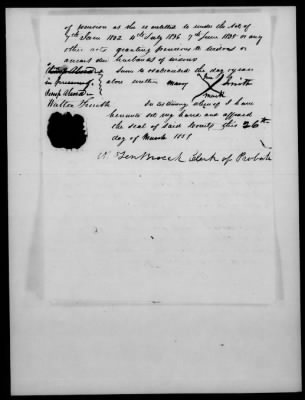 of pension as she is entitled to under the Act of
7th June 1832 4th July 1836 7th June 1838 or any
other acts granting pensions to widows or
Sworn & subscribed the day & year
in presence of
above written Mary Smith
her
mark
Walter French
In testimony whereof I have
hereunto set my hand and affixed
the seal of said County this 26th
day of March
W TenBroeck Clerk of Probate